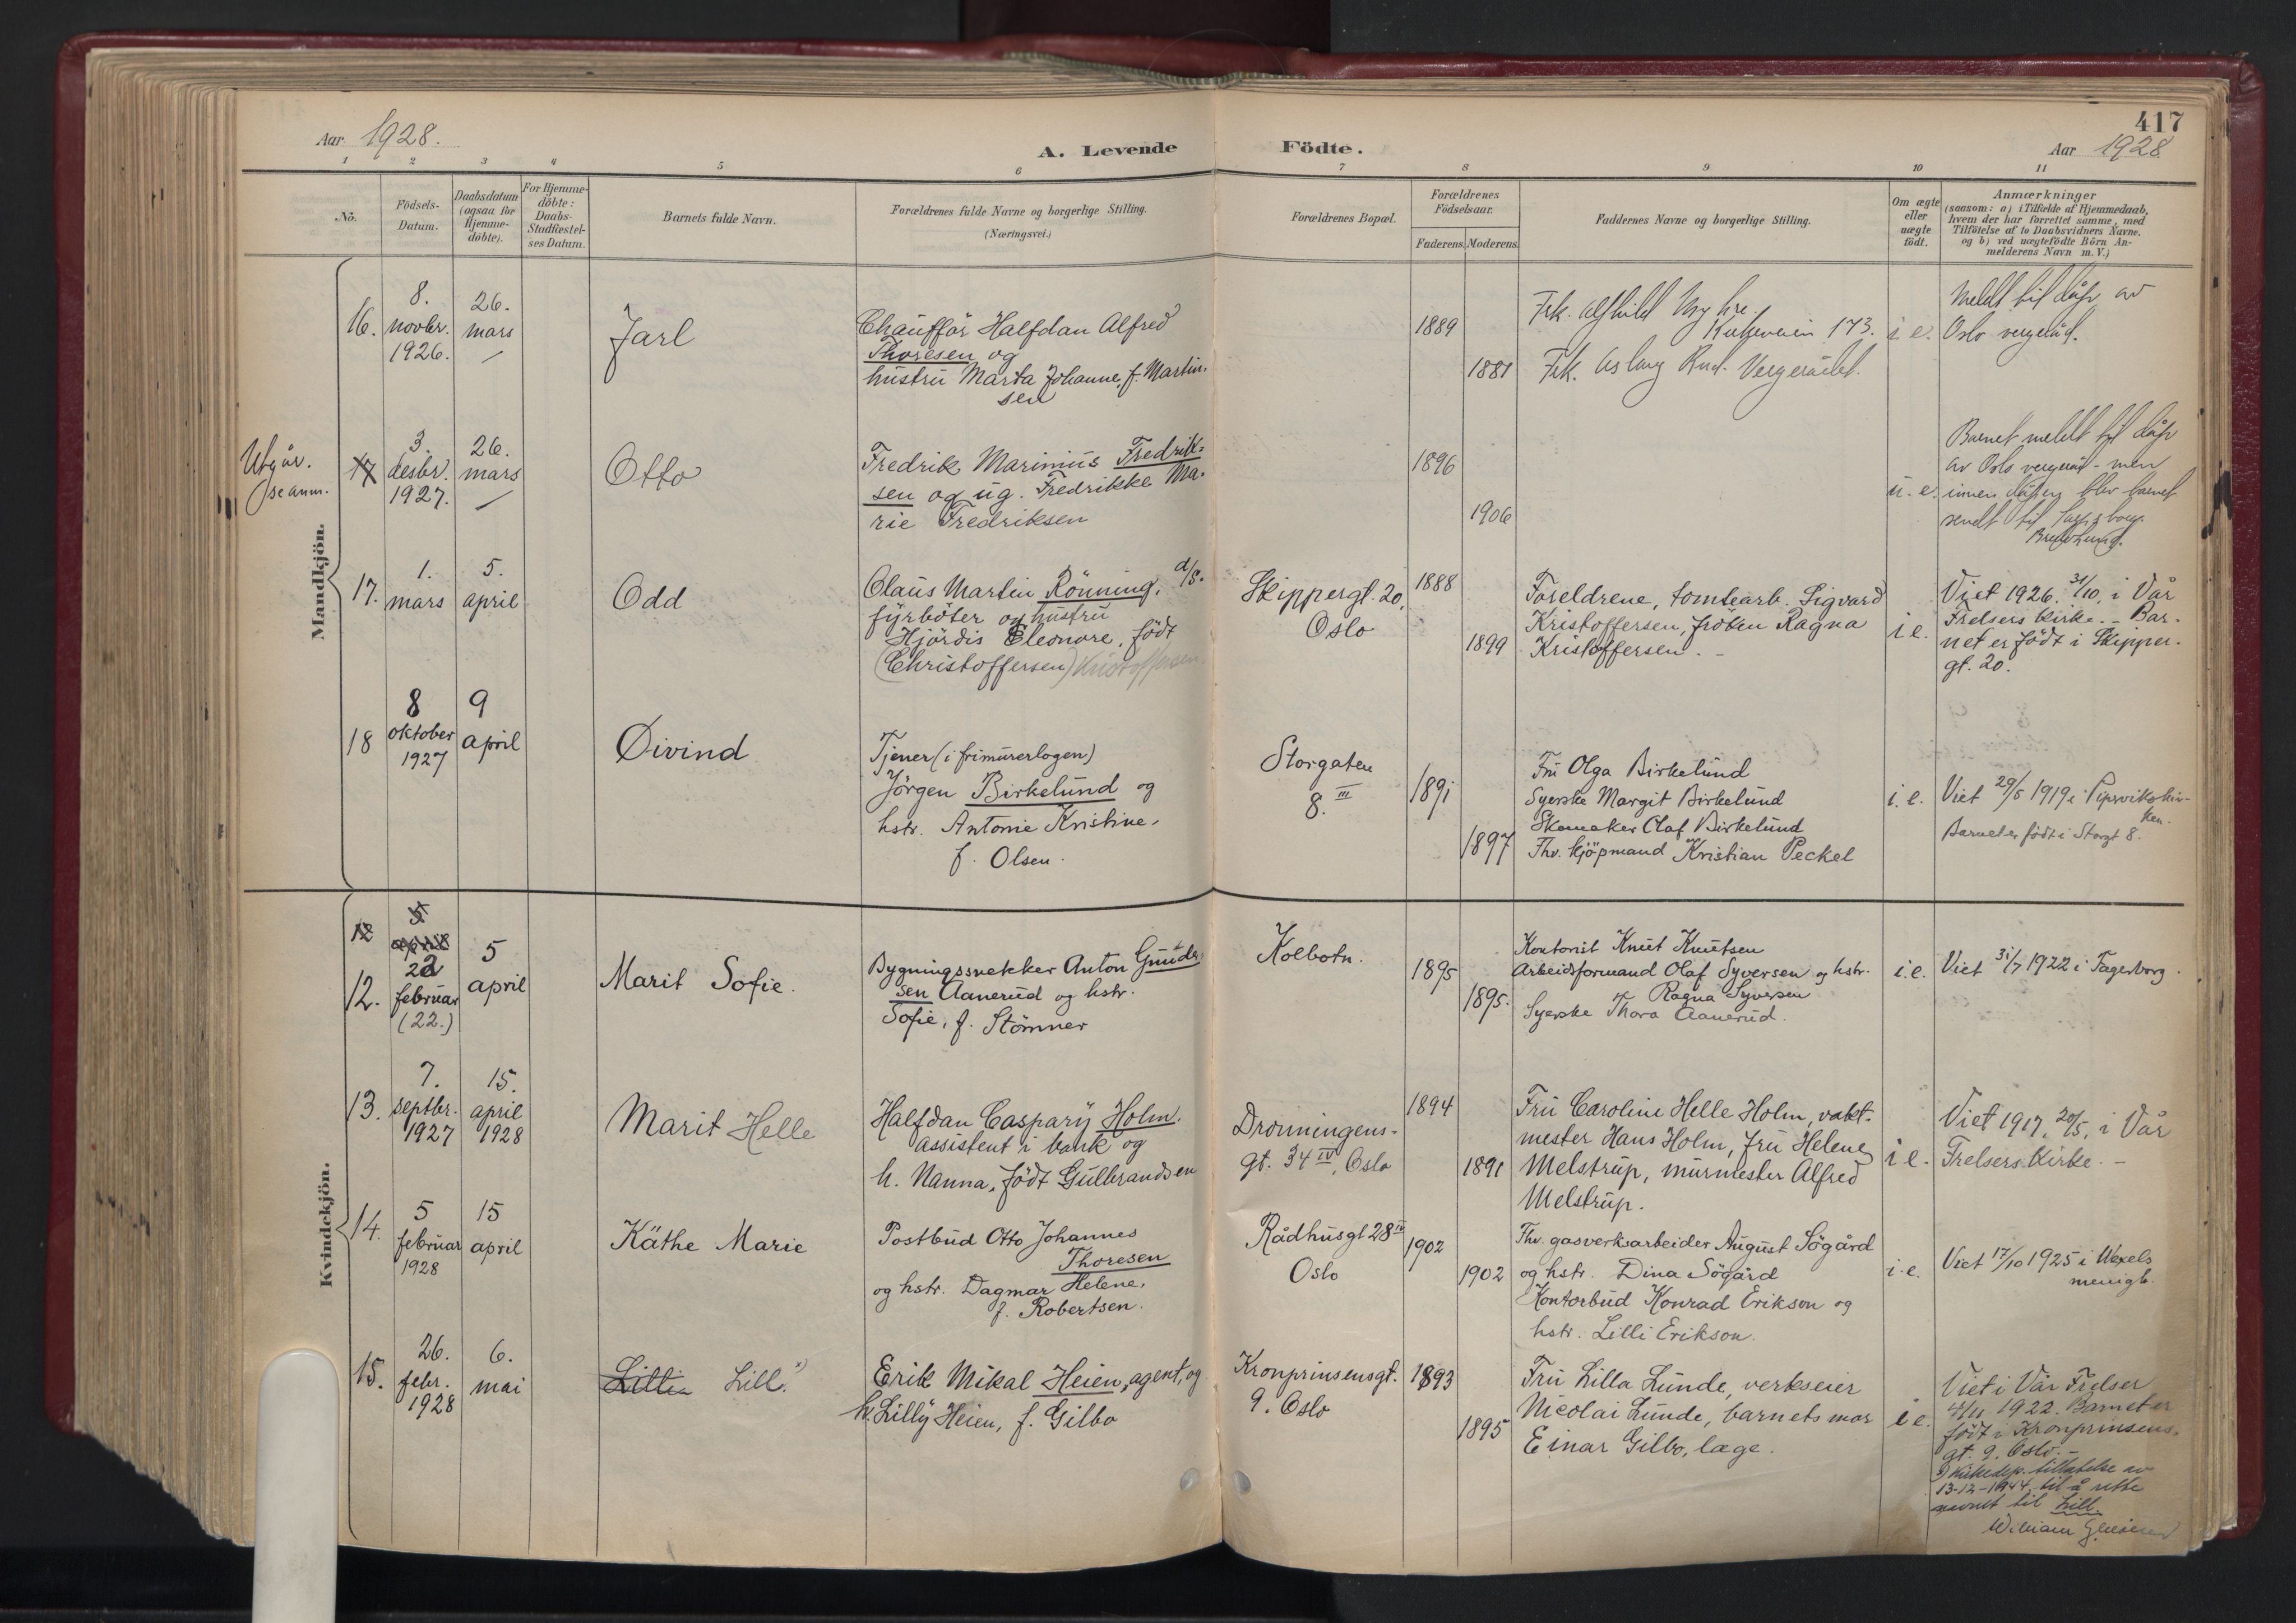 417
Aar 1928.
A. Levende Födte.
Aar 1928
1 2 3 4 5 6 7 8 9 10 11
No.
Födsels-
Datum.
Daabsdatum
(ogsaa for
Hjemme-
döbte).
For Hjemme-
döbte:
Daabs-
Stadfæstel-
ses Datum.
Barnets fulde Navn.
Forældrenes fulde Navne og borgerlige Stilling.
(Næringsvei.)
Forældrenes Bopæl.
Forældrenes
Födselsaar.
Faderens. Moderens.
Faddernes Navne og borgerlige Stilling.
Om ægte
eller
uægte
födt.
Anmærkninger
(saasom: a) i Tilfælde af Hjemmedaab,
hvem der har forrettet samme, med
Tilföielse af to Daabsvidners Navne,
og b) ved uægtefödte Börn An-
melderens Navn m. V.)
Mandkjön.
16.
8.
novbr.
1926.
26.
mars
Jarl
Chaufför Halfdan Alfred
Thoresen og
hustru Marta Johanne, f. Martin-
sen
1889
1881
Frk.
173.
Frk. Aslaug Rud. Vergerådet.
i e.
Meldt til dåp av
Oslo vergeråd.
Utgår.
se anm.
17
3.
desbr.
1927.
26.
mars
Otto
Fredrik Marinius Fredrik-
sen og ug. Fredrikke Ma-
rie Fredriksen
1896
1906
u. e.
Barnet meldt til dåp
av Oslo vergeråd - men
innen dåpen blev barnet
sendt til Sarpsborg.
17.
1.
mars
5.
april
Odd
Olaus Martin Rönning, d/s.
fyrböter og hustru
Hjördis Eleonore, födt
(Christoffersen) Kristoffersen.
Skippergt. 20,
Oslo
1888
1899
Foreldrene, tomtearb. Sigvard
Kristoffersen, fröken Ragna
Kristoffersen. -
i e.
Viet 1926. 31/10, i Vår
Frelsers kirke. - Bar-
net er födt i Skipper-
gt. 20.
18
8
oktober
1927
9
april
Øivind
Tjener (i frimurerlogen)
Jörgen Birkelund og
hstr. Antonie Kristine,
f. Olsen.
Storgaten
8. III
1891
1897
Fru Olga Birkelund
Syerske Margit Birkelund
Skomaker Olaf Birkelund
Thv. kjöpmand Kristian Peckel
i. e.
Viet 29/5 1919 i Pipervikskir-
ken.
Barnet er födt i Storgt 8.
Kvindekjön.
12
5
april
12.
22
februar
(22.)
5
april
Marit Sofie.
Bygningssnekker Anton Gunder-
sen Aanerud og hstr.
Sofie, f. Stömner
Kolbotn.
1895
1895.
Kontorist Knut Knutsen
Arbeidsformand Olaf Syversen og hstr.
Ragna Syversen
Syerske Thora Aanerud.
i. e.
Viet 31/7 1922 i Fagerborg.
13.
7.
septbr.
1927
15.
april
1928
Marit Helle
Halfdan Caspary Holm.
assistent i bank og
h. Nanna, födt Gulbrandsen
Dronningens-
gt. 34 IV, Oslo
1894
1891
Fru Caroline Helle Holm, vakt-
mester Hans Holm, fru Helene
Melstrup, murmester Alfred
Melstrup.
i e.
Viet 1917, 20/5, i Vår
Frelsers Kirke. -
14.
5
februar
1928
15
april
Käthe Marie
Postbud Otto Johannes
Thoresen
og hstr. Dagmar Helene,
f. Robertsen.
Rådhusgt 28 IV
Oslo
1902
1902
Thv. gasverksarbeider August Sögård
og hstr. Dina Sögård
Kontorbud Konrad Erikson og
hstr. Lilli Erikson.
i. e.
Viet 17/10 1925 i Wexels
menigh.
15.
26.
febr.
1928
6.
mai
Lillia Lill.
Erik Mikal Heien, agent, og
h. Lilly Heien, f. Gilbo
Kronprinsensgt.
9. Oslo
1893
1895
Fru Lilla Lunde, verkseier
Nicolai Lunde, barnets mor
Einar Gilbo, læge.
i e.
Viet i Vår Frelser
4/11 1922. Barnet er
födt i Kronprinsens-
gt. 9. Oslo. -
Kirkedep. tillatelse av
13-12-1944 til å rette
navnet til Lill.